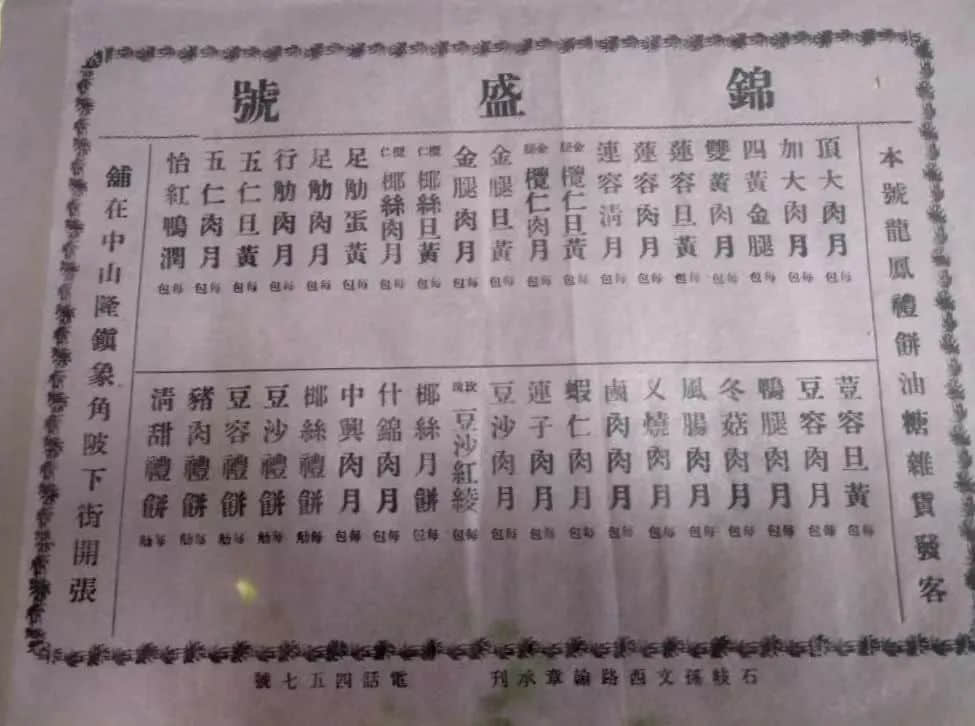 錦盛號
本號龍鳳禮餅油糖雜貨發客
頂大肉月每包
加大肉月每包
四黃金腿每包
雙黃肉月每包
蓮容旦黃每包
蓮容肉月每包
連容清月每包
金腿欖仁旦黃每包
金腿欖仁肉月每包
金腿旦黃每包
金腿肉月每包
欖仁椰絲旦黃每包
欖仁椰絲肉月每包
足觔蛋黃每包
足觔肉月每包
行觔肉月每包
五仁旦黃每包
五仁肉月每包
怡紅鴨潤每包
荳容旦黃每包
豆容肉月每包
鴨腿肉月每包
冬菇肉月每包
風腸肉月每包
乂燒肉月每包
鹵肉肉月每包
蝦仁肉月每包
蓮子肉月每包
豆沙肉月每包
玫瑰豆沙紅綾每包
椰絲月餅每包
什錦肉月每包
中興肉月每包
椰絲禮餅每觔
豆沙禮餅每觔
豆容禮餅每觔
豬肉禮餅每觔
清甜禮餅每觔
舖在中山隆鎮象角陂下街開張
石岐孫文西路諭章承刊 電話四五七號